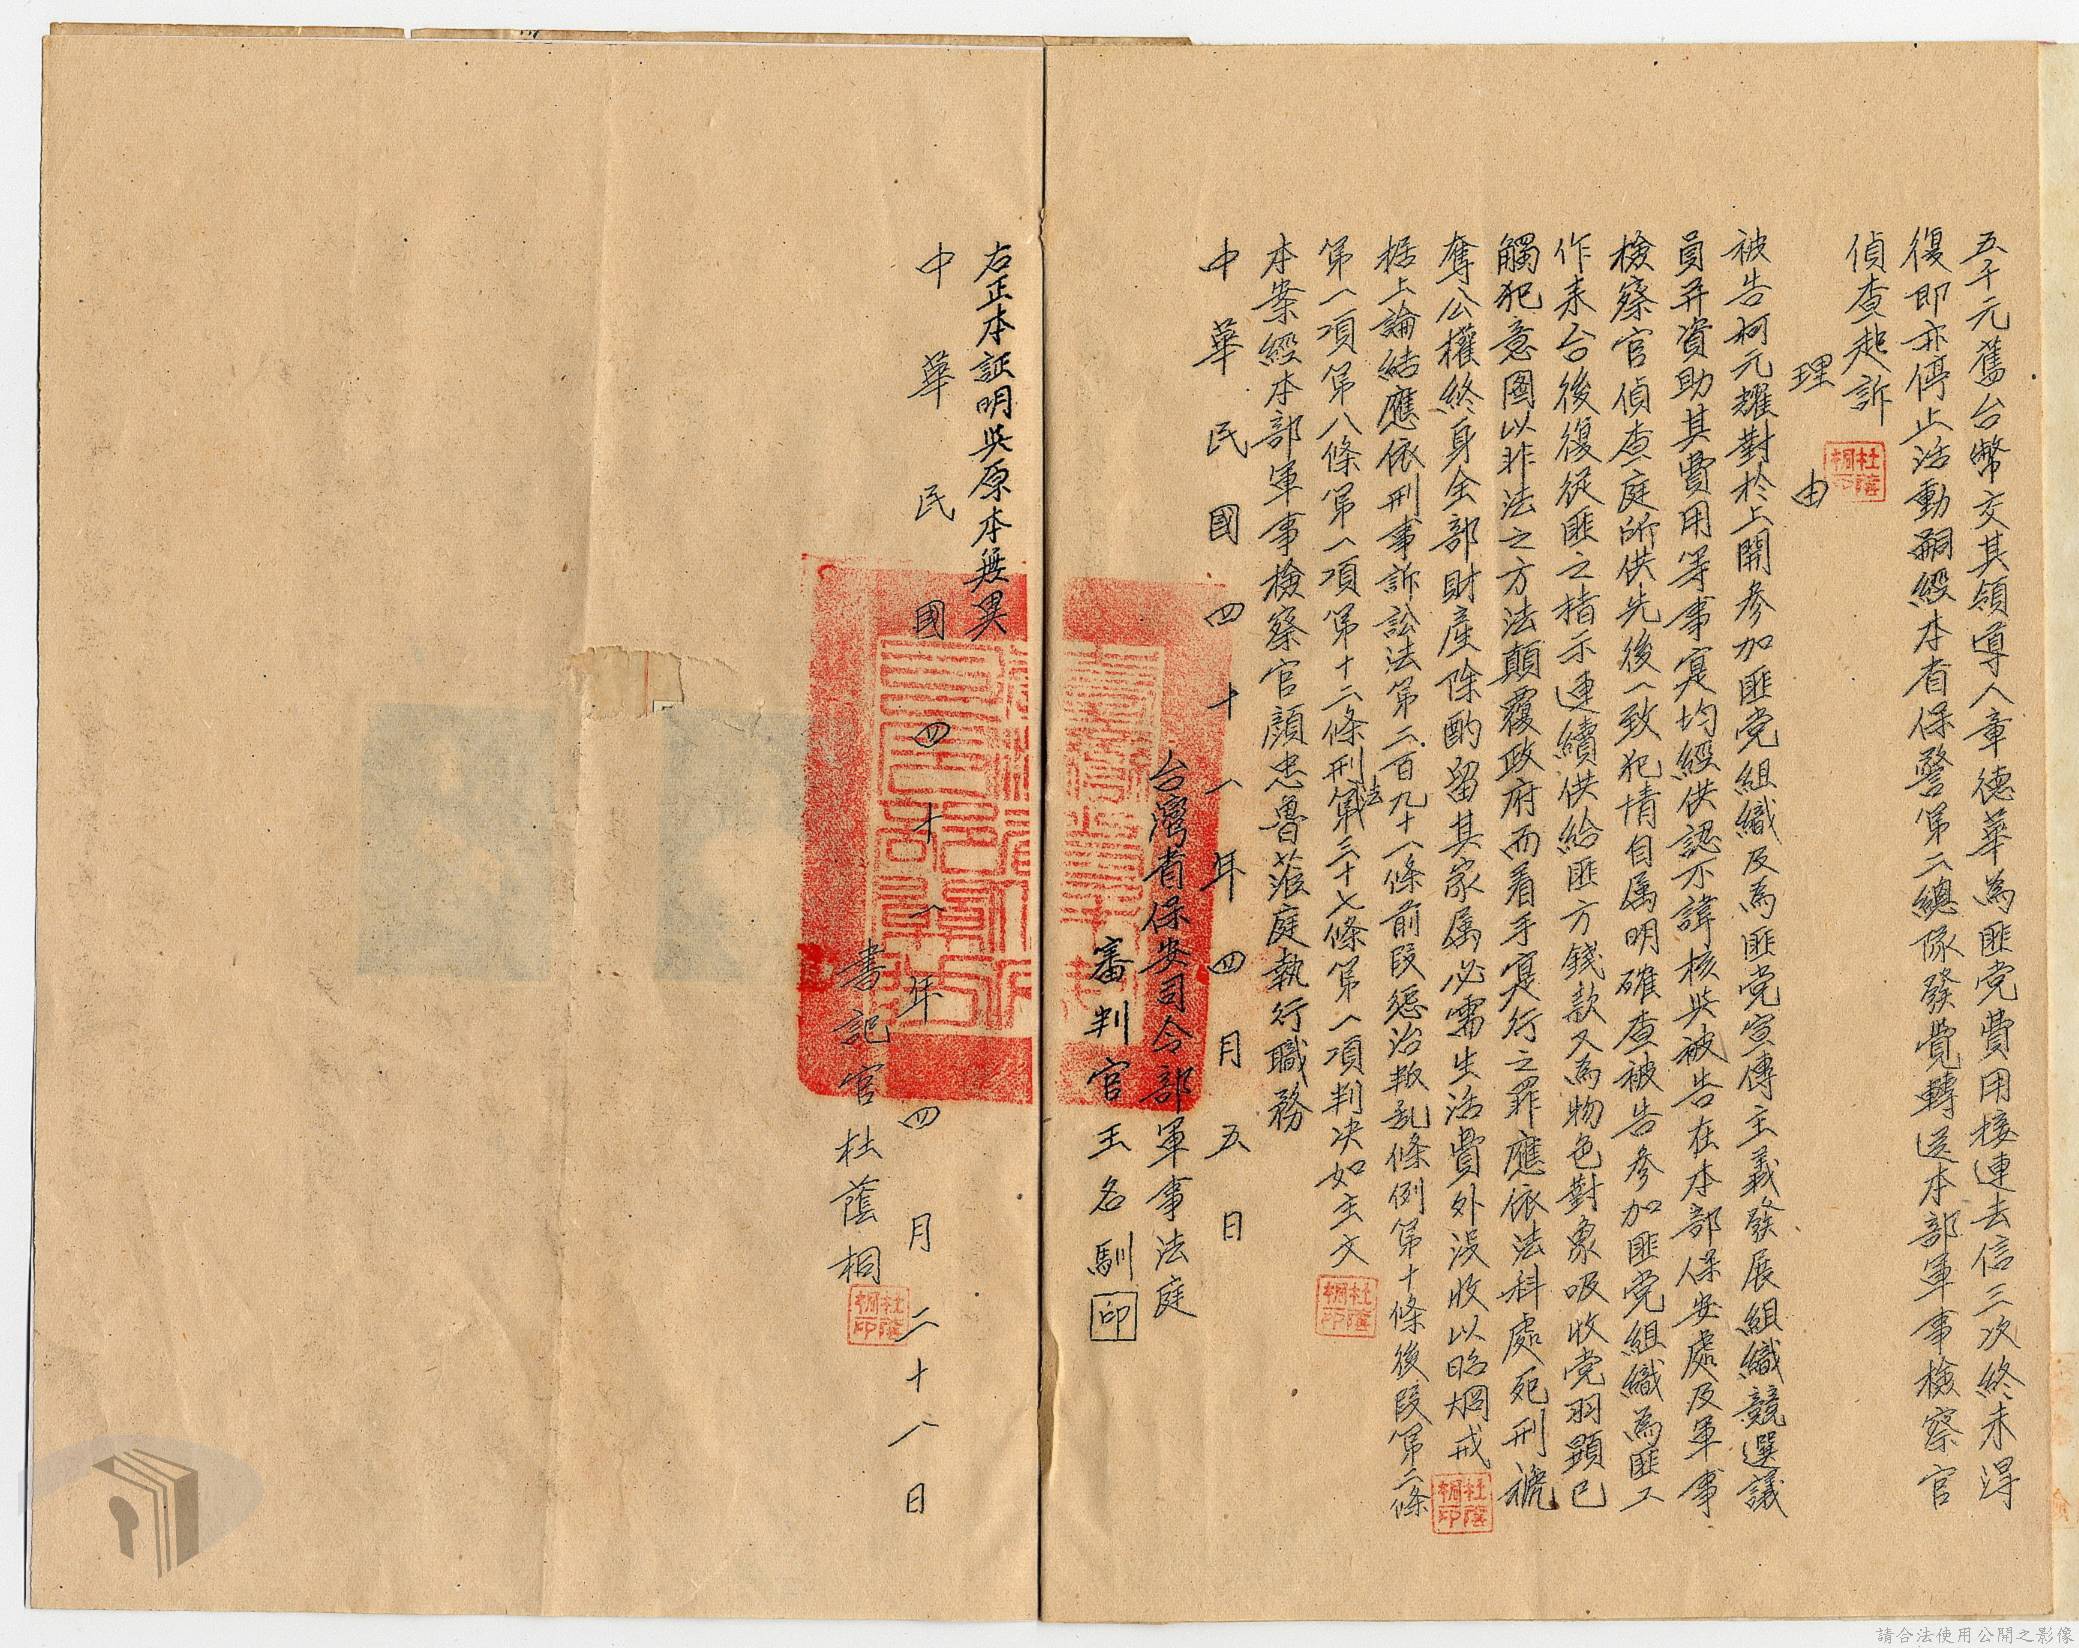 五千元舊台幣交其領導人章德華為匪党費用接連去信三次終未得
復即亦停止活動嗣經本省保警第二總隊發覺轉送本部軍事檢察官
偵查起訴
理由
被告柯元耀對於上開參加匪党組織及為匪党宣傳主義發展組織競選議
員并資助其費用等事寔均經供認不諱核與被告在本部保安處及軍事
檢察官偵查庭所供先後一致犯情自属明確查被告參加匪党組織為匪工
作來台後復從匪之指示連續供給匪方錢款又為物色對象吸收党羽顯已
觸犯意图以非法之方法顛覆政府而着手寔行之罪應依法科處死刑褫
奪公權終身全部財產除酌留其家属必需生活費外沒收以昭炯戒
据上論結應依刑事訴訟法第二百九十一條前段惩治叛乱條例第十條後段第二條
第一項第八條第一項第十二條刑法第三十七條第一項判决如主文
本案經本部軍事檢察官顏忠魯蒞庭執行職務
中華民國四十一年四月五日
台灣省保安司令部軍事法庭
審判官王名馴印
右正本証明與原本無異
中華民國四十一年四月二十八日
書記官杜蔭桐
杜蔭桐印
杜蔭桐印
杜蔭桐印
杜蔭桐印
請合法使用公開之影像